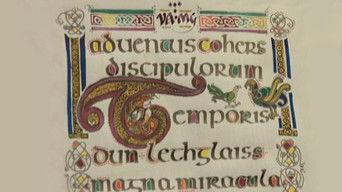 aduentus cohers
discipulorum
Temporis
dun lethglaiss
magna miracula